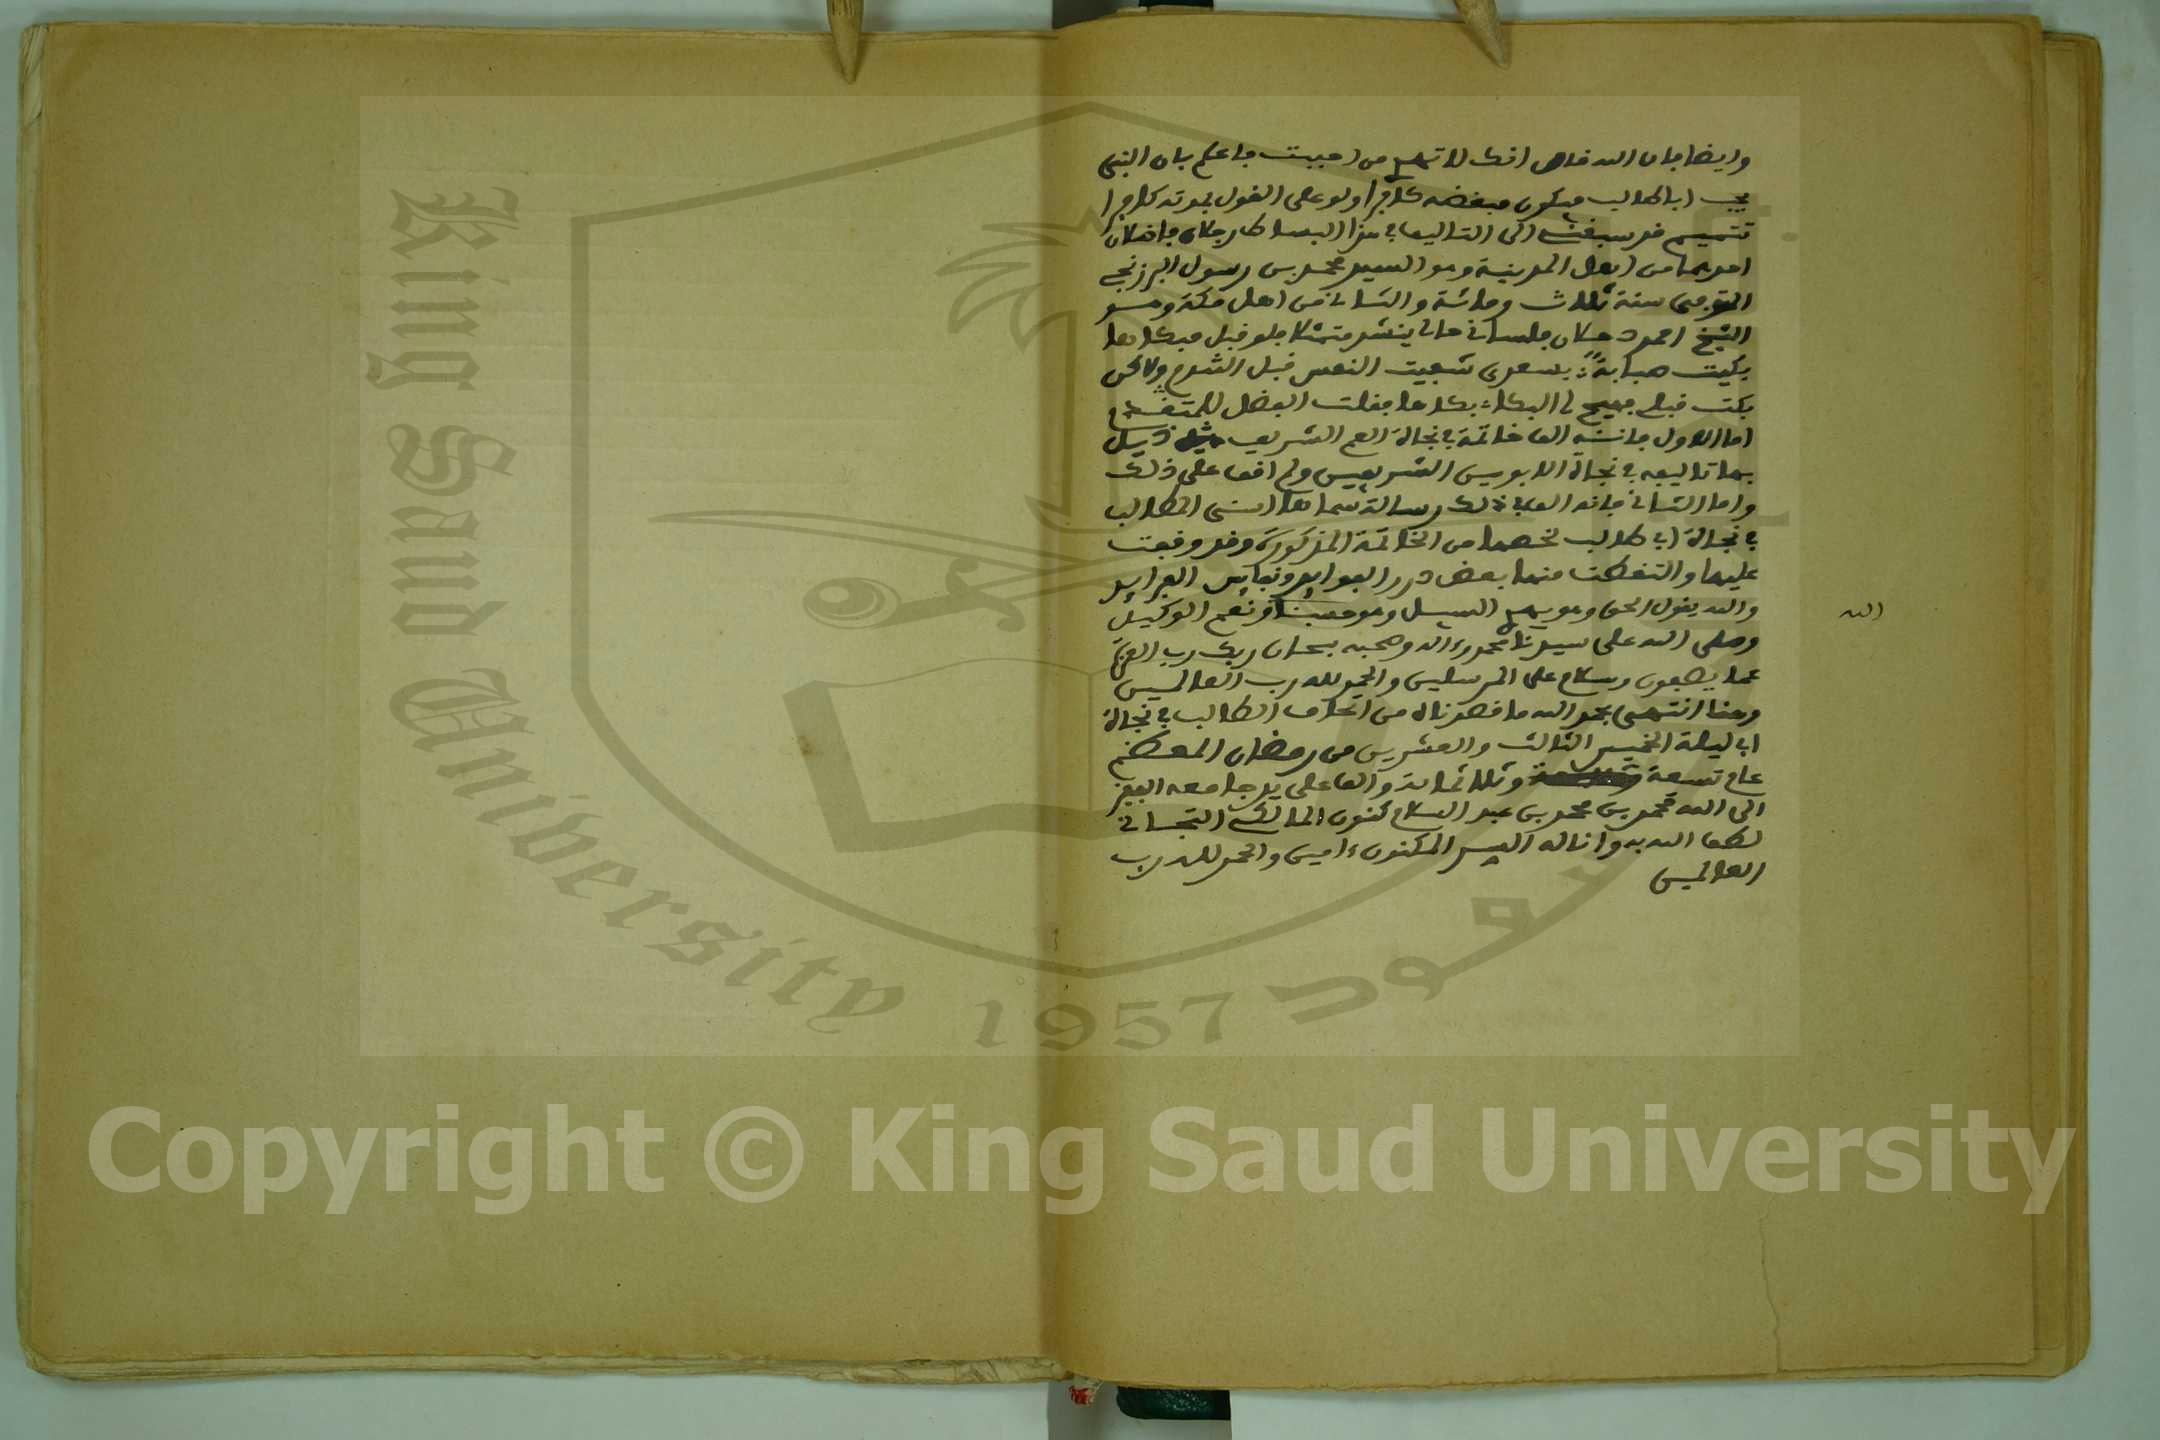 وايضا فان الله قال انك لا تهدي من احببت فاعلم بان النبي
يحب ابا طالب فيكون مبغضه كافرا ولو على القول بموته كافرا
تتميم قد سبقني الى التاليف في هذا البساط رجلان فاضلان
احدهما من اهل المدينة وهو السيد محمد بن رسول البرزنجي
المتوفى سنة ثلاث ومائة والثاني من اهل مكة وهو
الشيخ احمد دحلان فلسان حالي ينشد متمثلا فلو قبل مبكاها
بكيت صبابة بسعدى شفيت النفس قبل التندم ولاكن
بكت قبلي فهيج لي البكا بكاها فقلت الفضل للمتقدم
اما الاول فانه الف خاتمة في نجاة العم الشريف ذيل
بها تاليفه في نجاة الابوين الشريفين ولم اقف على ذلك
واما الثاني فانه الف في ذلك رسالة سماها اسنى المطالب
في نجاة ابي طالب لخصها من الخاتمة المذكورة وقد وقفت
عليها والتقطت منها بعض درر الفوايد ونفايس الفرايد
والله يقول الحق وهو يهدي السبيل وهو حسبنا ونعم الوكيل
الله
وصلى الله على سيدنا محمد وءاله وصحبه سبحان ربك رب العزة
عما يصفون وسلام على المرسلين والحمد لله رب العالمين
وهنا انتهى بحمد الله ما قصدناه من اتحاف الطالب في نجاة
ابي ليلة الخميس الثالث والعشرين من رمضان المعظم
عام تسعة وثلاثماية والف على يد جامعه الفقير
الى الله محمد بن محمد بن عبد السلام كنون المالكي التجاني
لطف الله به واناله السر المكنون ءامين والحمد لله رب
العالمين
King Saud University
1957
Copyright © King Saud University